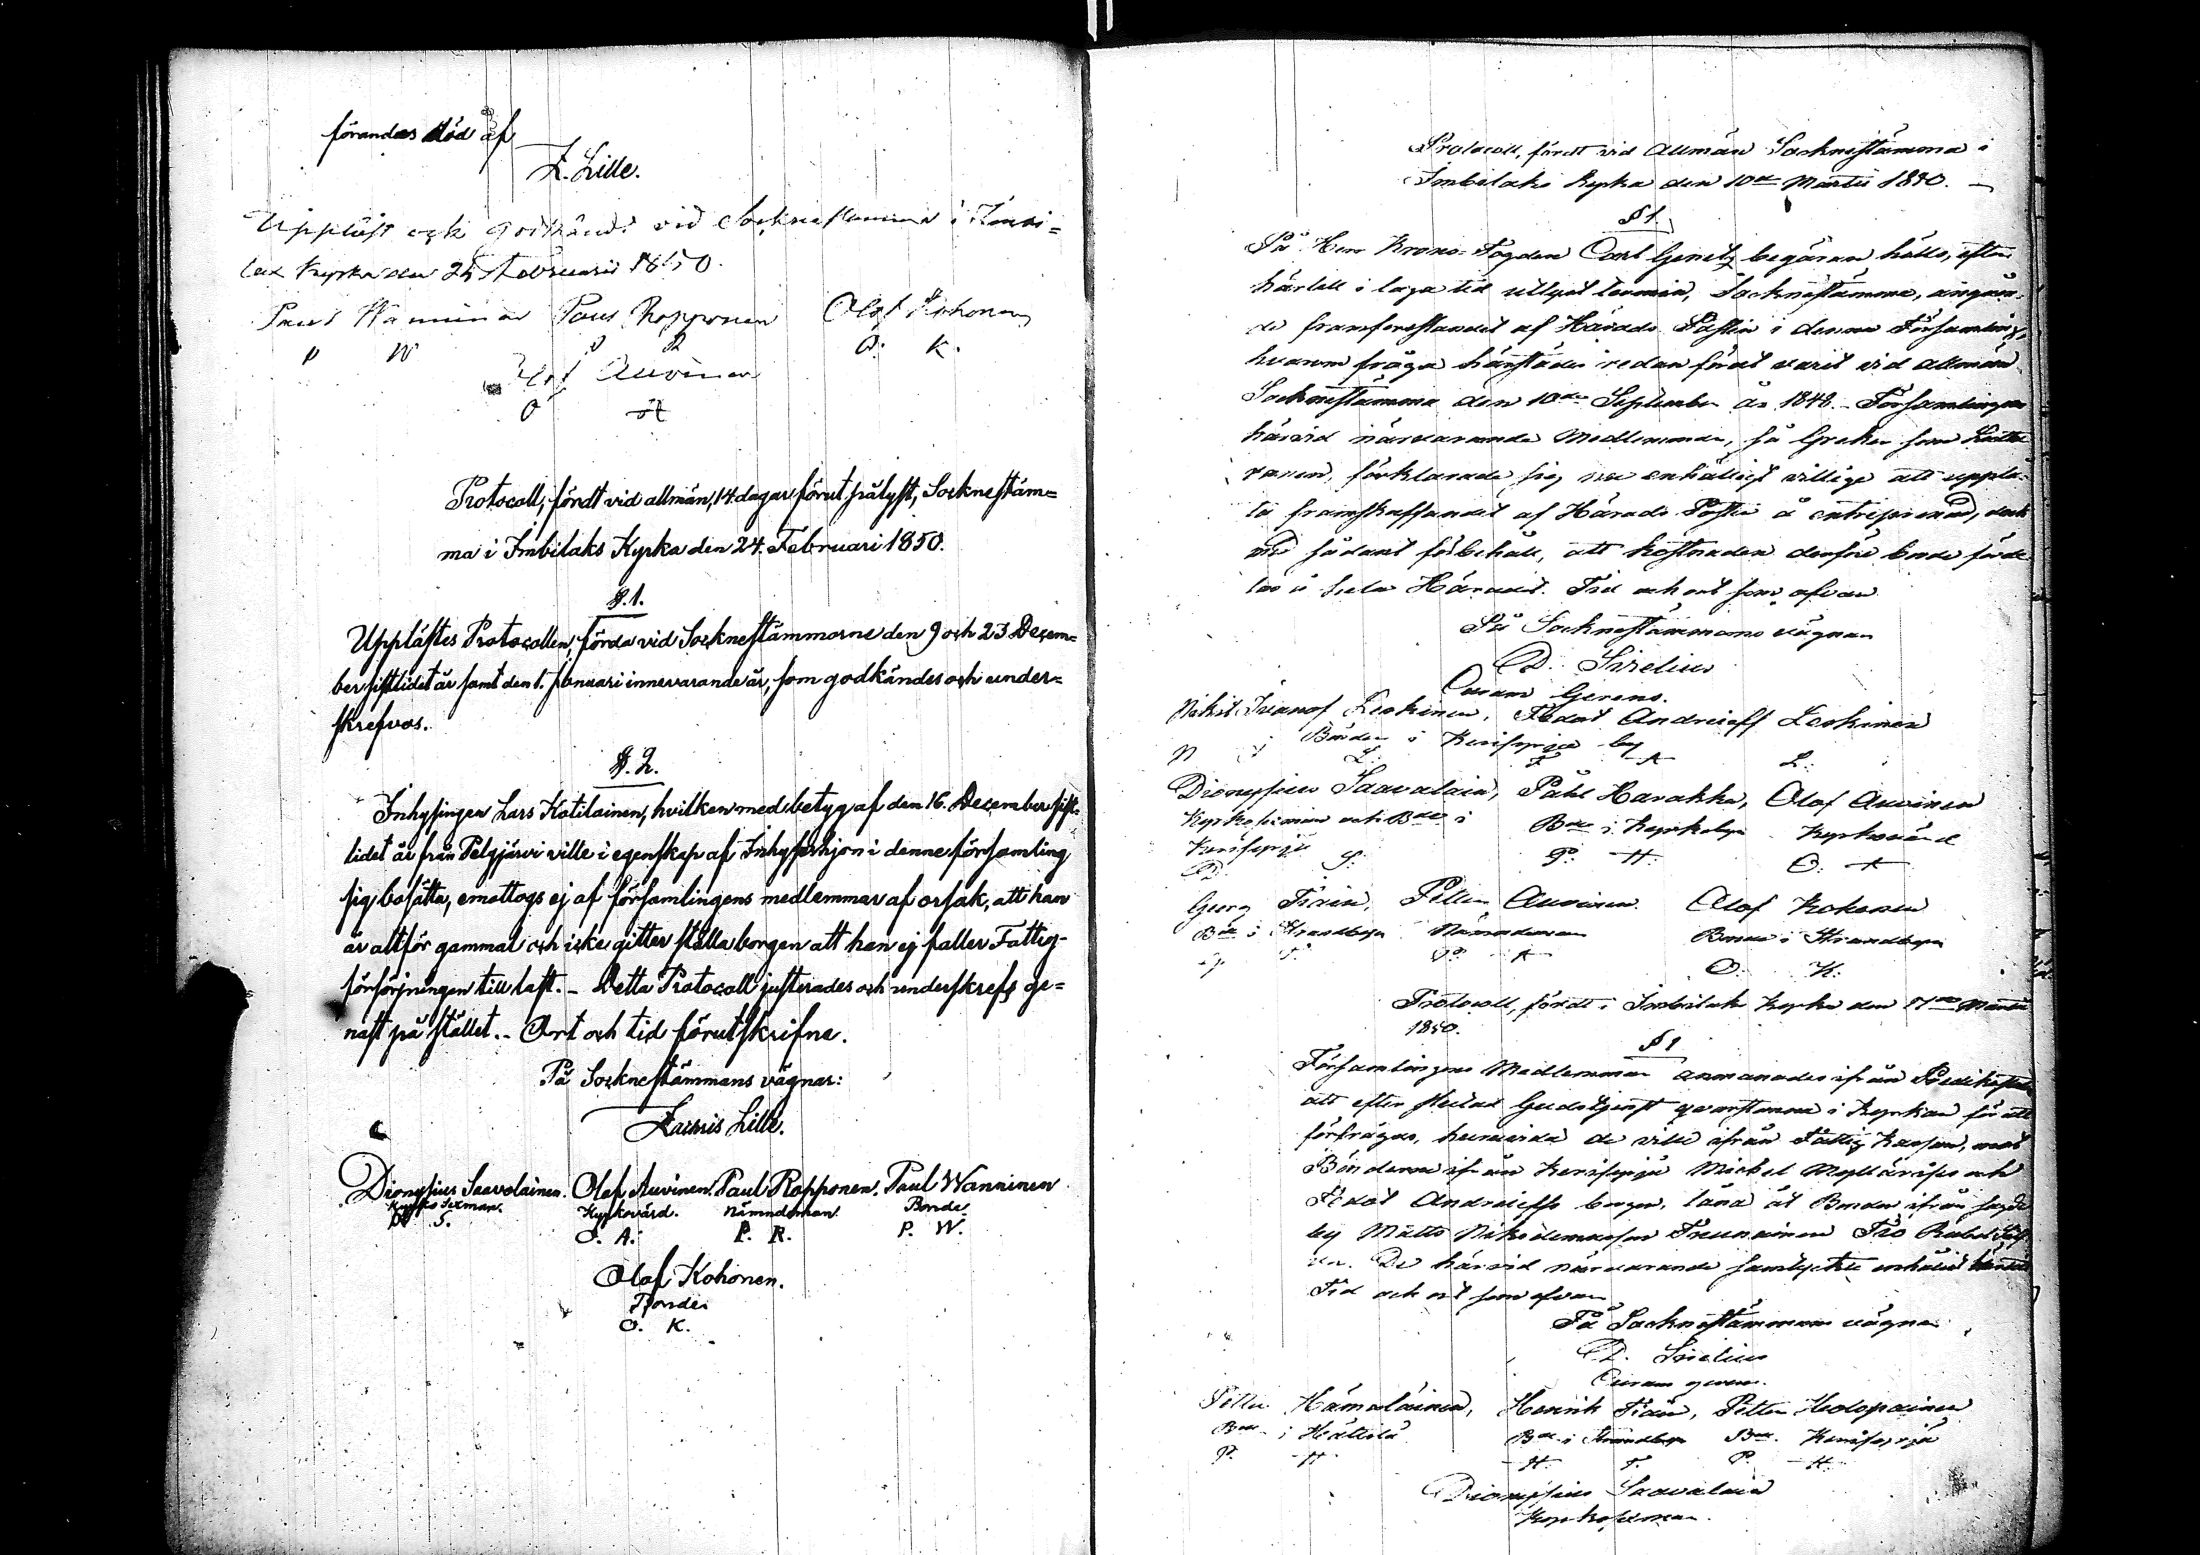 förandes stöd af
Z. Lille.
Uppläst och godkändt vid Sockne stämma i Imbi=
lax Kyrka den 24 Februarii 1850.
Paul Wanninen Paul Ropponen Olof Kohonen
P W P R O. K.
Olof Auvinen
O A
Protocoll, fördt vid allmän, 14 dagar förut pålyst, Socknestäm=
ma i Imbilaks Kyrka den 24. Februari 1850.
§. 1.
Upplästes Protocollen, förda vid Socknestämmorne den 9 och 23 Decem=
ber sistlidet år samt den 1. Januari innevarande år, som godkändes och under=
skrefvos.
§. 2.
Inhysingen Lars Kotilainen, hvilken med betyg af den 16. December sist-
lidet år från Pelgjärvi ville i egenskap af Inhyseshjon i denne församling
sig bosätta, emottogs ej af församlingens medlemmar af orsak, att han
är altför gammal och icke gitter ställa borgen att han ej faller Fattig-
försörjningen till last. - Detta Protocoll justerades och underskrefs ge=
nast på stället. - Ort och tid förutskrifne.
På Socknestämmans vägnar:
Zacuris Lille.
Dionysius Saavolainen. Olof Auvinen. Paul Ropponen. Paul Wanninen
Kyrko Sexman. Kyrkovärd. Nämndeman Bonde.
D S. O. A. P. R. P. W.
Olof Kohonen.
Bonde
O. K.
Protocoll, fördt vid Allmän Socknestämma i
Imbilaks Kyrka den 10de Martii 1850. -
§ 1.
På Herr Krono-Fogden Carl Genetz begäran hölls, efter
härtill i laga tid utlyst termin, Socknestämma, angåen-
de framforslandet af Härads Posten i denna Församling,
hvarom fråga härstädes redan förut varit vid allmän
Socknestämma den 10de September år 1848. - Församlingens
härvid närvarande Medlemmar, så Greker som Luthe
raner, förklarade sig nu enhälligt villige att upplå-
ta framskaffandet af Härads Posten å entreprenad, dock
med sådant förbehåll, att kostnaden derföre borde förde
las å hela Häradet. Tid och ort som ofvan
På Socknestämmans vägnar
D. Sirelius
Curam Gerens.
Nikit Ivanof Leskinen, Fedot Andreieff Leskinen
Bönder i Kerisyrjä by
N I L. F A L.
Dionysius Saavolain, Påhl Harakka, Olof Auvinen
Kyrkosexman och Bde i Bde i Kyrkobyn Kyrkvärd
Kerisyrjä
D. S. P. H. O. A
Georg Tirin, Petter Auvinen Olof Kohonen
Bde i Strandbyn Nämndeman Bonde i Strandbyn
G. T. P. A O. K.
Protocoll, fördt i Imbilak Kyrka den 17de Martii
1850.
§ 1
Församlingens Medlemmar anmanades ifrån Predikstolen
att efter slutad Gudstjenst qvarstanna i Kyrkan för att
förfrågas, huruvida de ville ifrån Fattig Kassan, mot
Bönderne ifrån Kerisyrjä Mickel
Fedot Andreieffs borgen, låna åt Bonden ifrån sagde
by Matts Nikodemusson Trunninen Tio Rubel Silf
ver. De härvid närvarande samtyckte enhälligt härtill
Tid och ort som ofvan
På Socknestämmans vägnar
D. Sirelius
Curam gerens.
Petter Hämäläinen, Henrik Tirin, Petter Holopainen
Bde i Hättölä Bde i Strandbyn Bde Kerisyrjä
P. H H. T. P. H.
Dionysius Saavolain
Kyrkosexman.